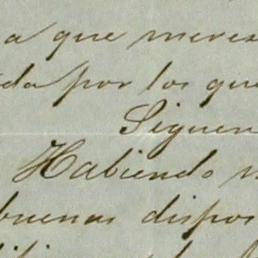 a que meres
da por los que
Siguen
Habiendo
buenas dispos